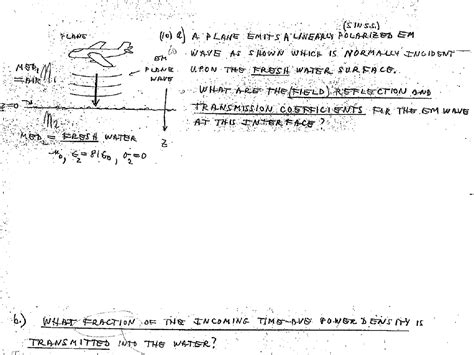 PLANE
EM
PLANE
WAVE
MED1
= AIR
η1
Z=0
η2
MED2 = FRESH WATER
μ0, ε2=81ε0, σ2=0
Z
(SIN.S.S.)
(10) a) A PLANE EMITS A LINEARLY POLARIZED EM
WAVE AS SHOWN WHICH IS NORMALLY INCIDENT
UPON THE FRESH WATER SURFACE.
WHAT ARE THE (FIELD) REFLECTION AND
TRANSMISSION COEFFICIENTS FOR THE EM WAVE
AT THIS INTERFACE?
b.) WHAT FRACTION OF THE INCOMING TIME-AVE POWER DENSITY IS
TRANSMITTED INTO THE WATER?